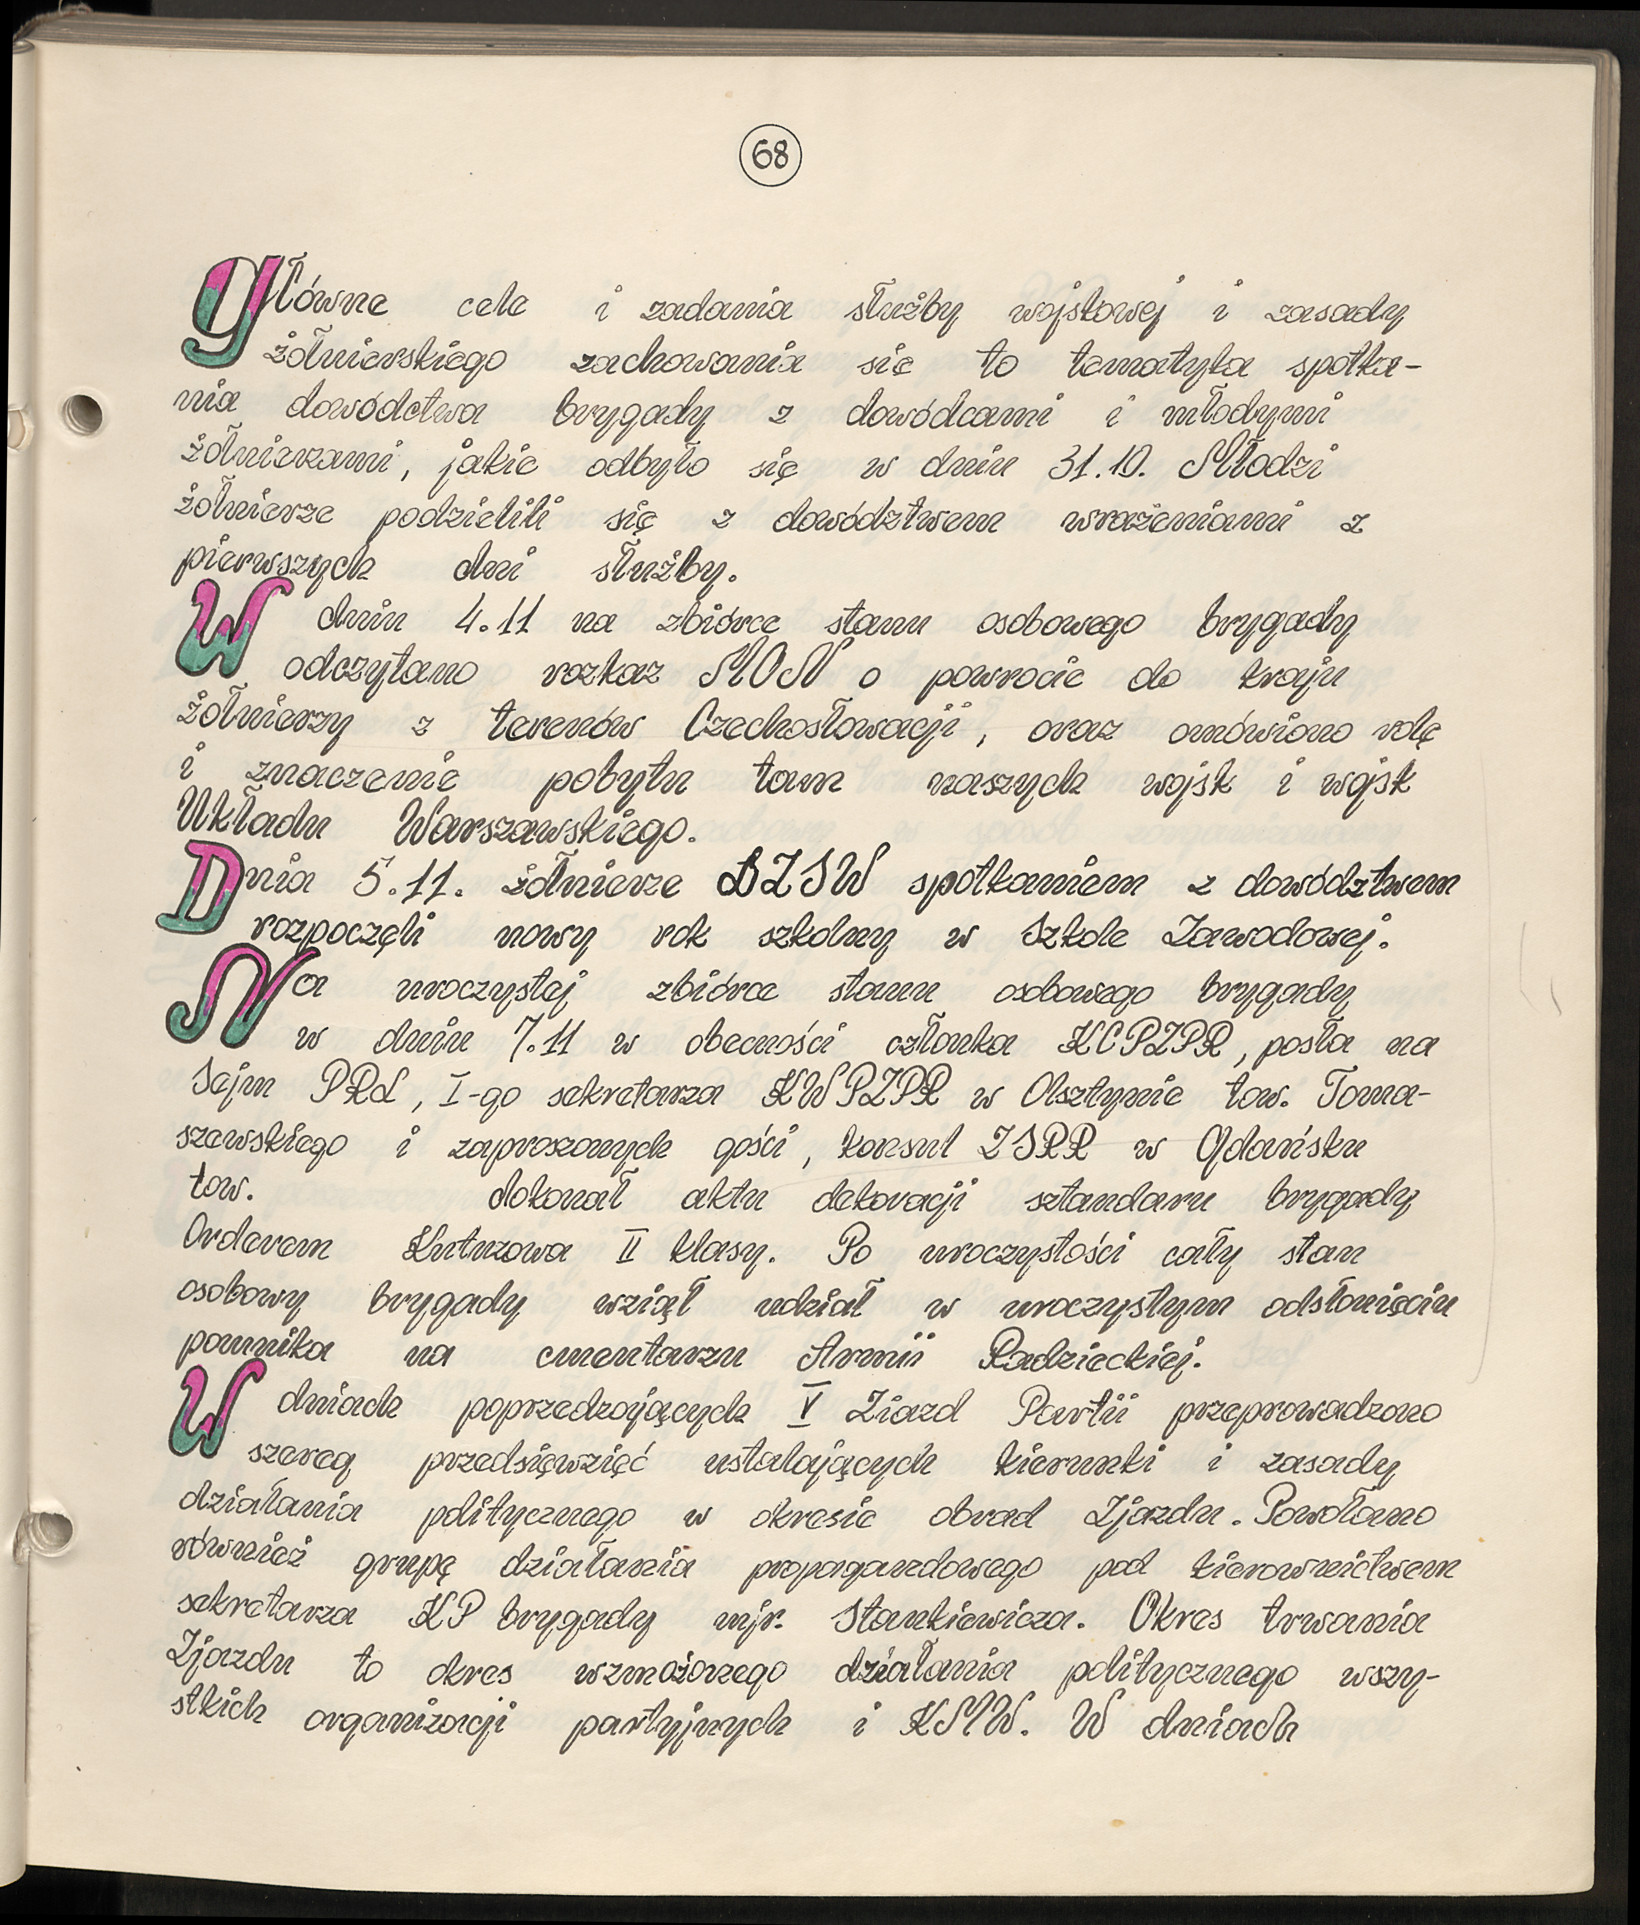 68
Główne cele i zadania służby wojskowej i zasady
żołnierskiego zachowania się to tematyka spotka-
nia dowództwa brygady z dowódcami i młodymi
żołnierzami, jakie odbyło się w dniu 31.10. Młodzi
żołnierze podzielili się z dowództwem wrażeniami z
pierwszych dni służby.
W dniu 4.11 na zbiórce stanu osobowego brygady
odczytano rozkaz MON o powrocie do kraju
żołnierzy z terenów Czechosłowacji, oraz omówiono rolę
i znaczenie pobytu tam naszych wojsk i wojsk
Układu Warszawskiego.
Dnia 5.11. żołnierze BZSW spotkaniem z dowództwem
rozpoczęli nowy rok szkolny w Szkole Zawodowej.
Na uroczystej zbiórce stanu osobowego brygady
w dniu 7.11 w obecności członka KCPZPR, posła na
Sejm PRL, I-go sekretarza KWPZPR w Olsztynie tow. Toma-
szewskiego i zaproszonych gości, konsul ZSRR w Gdańsku
tow. dokonał aktu dekoracji sztandaru brygady
Orderem Kutuzowa II klasy. Po uroczystości cały stan
osobowy brygady wziął udział w uroczystym odsłonięciu
pomnika na cmentarzu Armii Radzieckiej.
W dniach poprzedzających V Zjazd Partii przeprowadzono
szereg przedsięwzięć ustalających kierunki i zasady
działania politycznego w okresie obrad Zjazdu. Powołano
również grupę działania propagandowego pod kierownictwem
sekretarza KP brygady mjr. Stankiewicza. Okres trwania
Zjazdu to okres wzmożonego działania politycznego wszy-
stkich organizacji partyjnych i KMW. W dniach